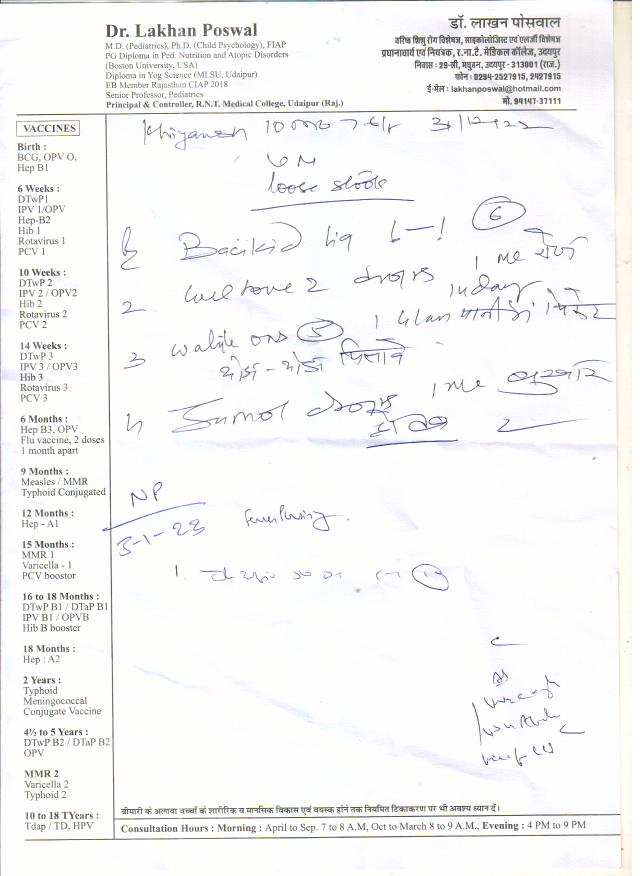 Dr. Lakhan Poswal
M.D. (Pediatrics), Ph.D. (Child Psychology), FIAP
PG Diploma in Ped. Nutrition and Atopic Disorders
(Boston University, USA)
Diploma in Yog Science (MLSU, Udaipur)
EB Member Rajasthan CIAP 2018
Senior Professor, Pediatrics
Principal & Controller, R.N.T. Medical College, Udaipur (Raj.)
डॉ. लाखन पोसवाल
वरिष्ठ शिशु रोग विशेषज्ञ, साइकोलोजिस्ट एवं एलर्जी विशेषज्ञ
प्रधानाचार्य एवं नियंत्रक, र.ना.टै. मेडिकल कॉलेज, उदयपुर
निवास : 29-सी, मधुबन, उदयपुर - 313001 (राज.)
फोन : 0294-2527915, 2427915
ई-मेल : lakhanposwal@hotmail.com
मो. 94147-37111
VACCINES
Birth :
BCG, OPV O,
Hep B1
6 Weeks :
DTwP1
IPV 1/OPV
Hep-B2
Hib 1
Rotavirus 1
PCV 1
10 Weeks :
DTwP 2
IPV 2 / OPV2
Hib 2
Rotavirus 2
PCV 2
14 Weeks :
DTwP 3
IPV 3 / OPV3
Hib 3
Rotavirus 3
PCV 3
6 Months :
Hep B3, OPV
Flu vaccine, 2 doses
1 month apart
9 Months :
Measles / MMR
Typhoid Conjugated
12 Months :
Hep - A1
15 Months :
MMR 1
Varicella - 1
PCV boostor
16 to 18 Months :
DTwP B1 / DTaP B1
IPV B1 / OPVB
Hib B booster
18 Months :
Hep : A2
2 Years :
Typhoid
Meningococcal
Conjugate Vaccine
4½ to 5 Years :
DTwP B2 / DTaP B2
OPV
MMR 2
Varicella 2
Typhoid 2
10 to 18 TYears :
Tdap / TD, HPV
10 mo 31/12/22
loose stools
Backid liq 1-1 6
2 drops 1 ml
3 walyte ors 5 1 glass पानी में
थोड़ा-थोड़ा पिलावे
4 drops 1 ml बुखार
हो तब
NP
3-1-23
1.
बीमारी के अलावा बच्चों के शारीरिक व मानसिक विकास एवं वयस्क होने तक नियमित टिकाकरण पर भी अवश्य ध्यान दें।
Consultation Hours : Morning : April to Sep. 7 to 8 A.M, Oct to March 8 to 9 A.M., Evening : 4 PM to 9 PM